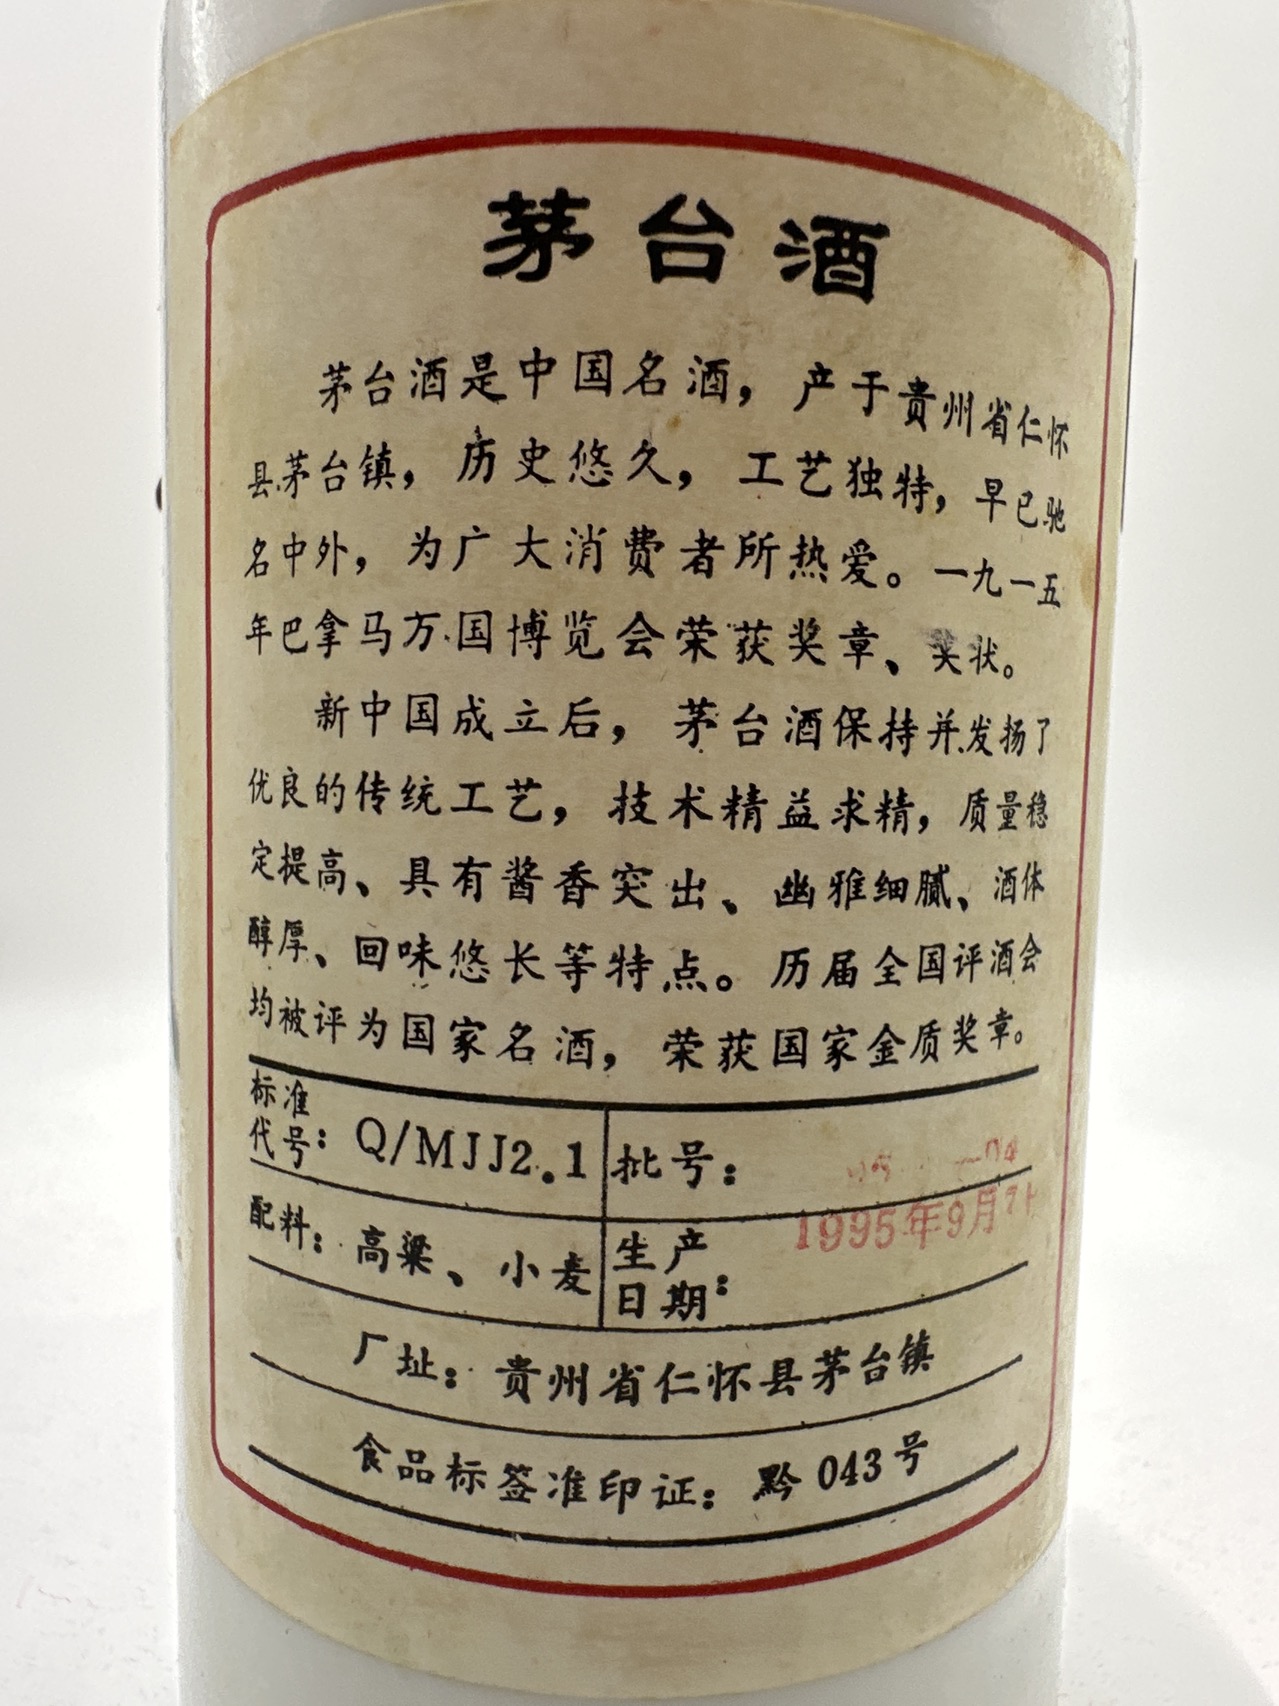 茅台酒
茅台酒是中国名酒，产于贵州省仁怀
县茅台镇，历史悠久，工艺独特，早已驰
名中外，为广大消费者所热爱。一九一五
年巴拿马万国博览会荣获奖章、奖状。
新中国成立后，茅台酒保持并发扬了
优良的传统工艺，技术精益求精，质量稳
定提高、具有酱香突出、幽雅细腻、酒体
醇厚、回味悠长等特点。历届全国评酒会
均被评为国家名酒，荣获国家金质奖章。
标准代号：Q/MJJ2.1 批号：
配料：高粱、小麦 生产日期：1995年9月7
厂址：贵州省仁怀县茅台镇
食品标签准印证：黔043号